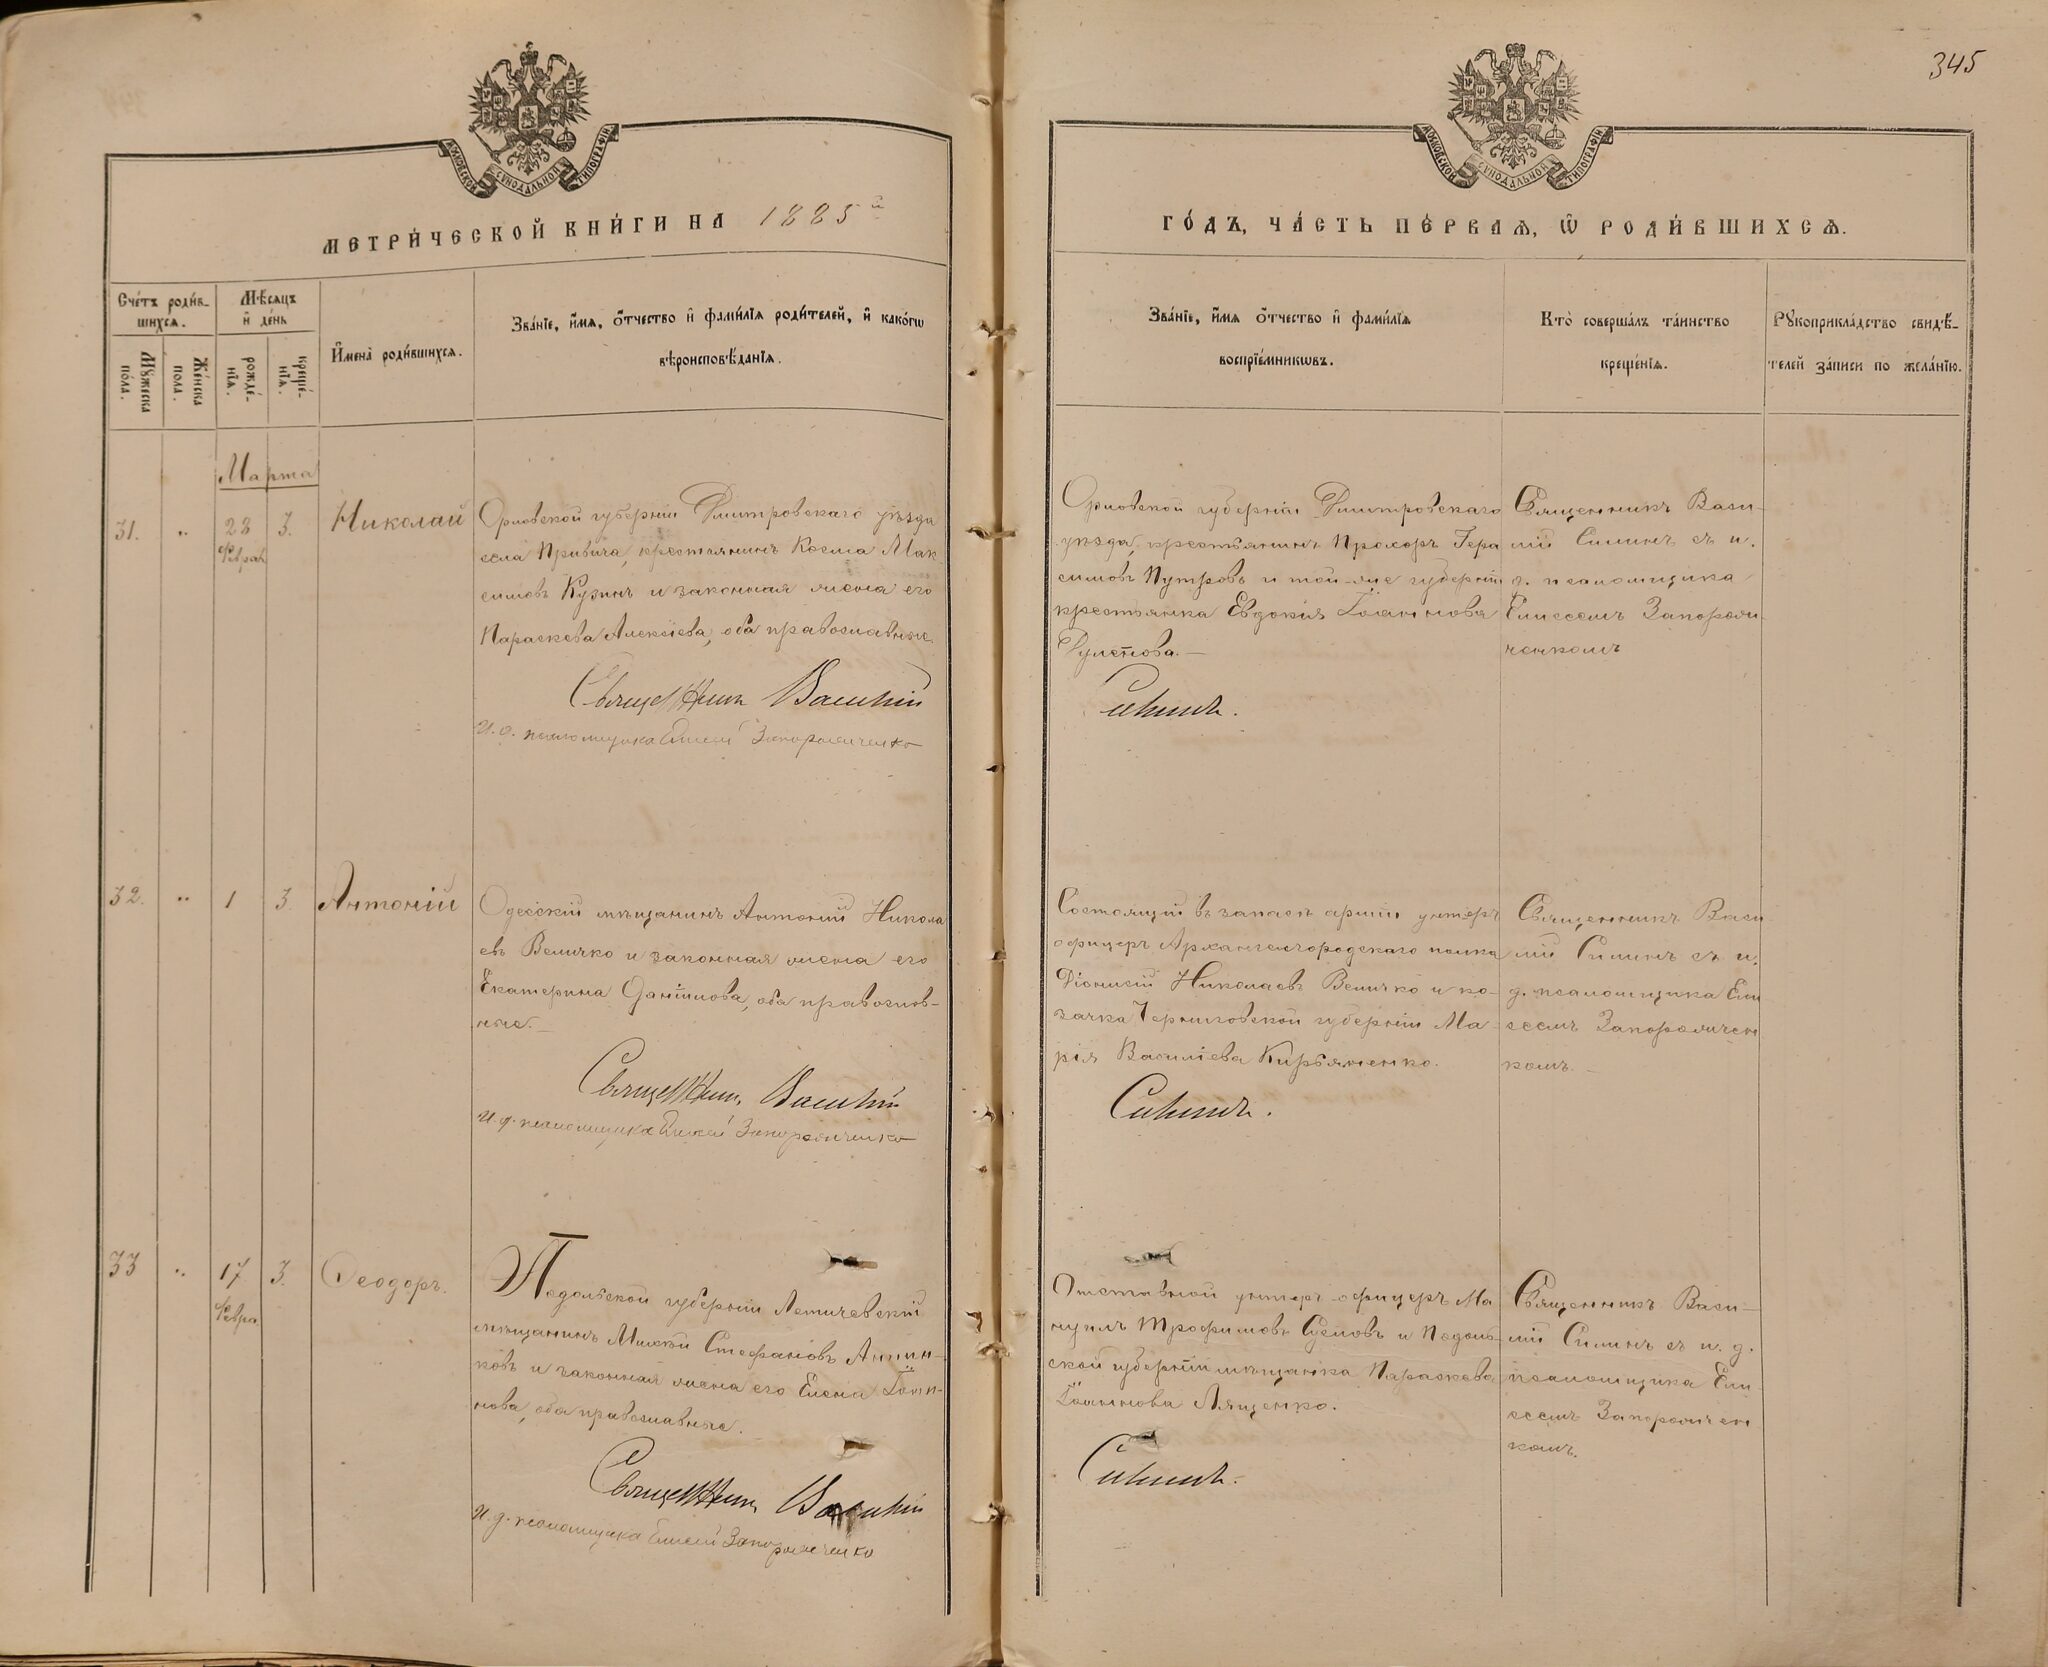 345
МОСКОВСКОЙ СѴНОДАЛЬНОЙ ТИПОГРАФІИ
МОСКОВСКОЙ СѴНОДАЛЬНОЙ ТИПОГРАФІИ
МЕТРИ́ЧЕСКОЙ КНИ́ГИ НА 1885й
ГО́ДЪ, ЧА́СТЬ ПЕ́РВАѦ, Ѡ҆ РОДИ́ВШИХСѦ.
Сче́тъ роди́в-
шихсѧ.
Мꙋжеска
по́ла.
Же́нска
пола.
Мѣ́сѧцъ
и҆ де́нь
рожде́-
нїѧ.
креще́-
нїѧ.
И҆мена̀ роди́вшихсѧ.
Зва́нїе, и҆́мѧ, ѻ҆́тчество и҆ фами́лїѧ роди́телей, и҆ како́гѡ
вѣроисповѣ́данїѧ.
Зва́нїе, и҆́мѧ ѻ҆́тчество и҆ фами́лїѧ
воспрїе́мникѡвъ.
Кто̀ соверша́лъ та́инство
креще́нїѧ.
Рꙋкоприкла́дство свидѣ́-
телей за́писи по жела́нїю.
Марта
31.
"
23
Февраля
3.
Николай
Орловской губерніи Дмитровскаго уѣзда
села Привича, крестьянинъ Косма Мак-
симовъ Кузинъ и законная жена его
Параскева Алексіева, оба православные.
Священникъ Василій
И. д. псаломщика Елисей Запорожченко
Орловской губерніи Дмитровскаго
уѣзда, крестьянинъ Прохоръ Гера
симовъ Путровъ и той-же губерніи
крестьянка Евдокія Іоаннова
Силинъ.
Священникъ Васи-
лій Силинъ съ и.
д. псаломщика
Елисеемъ Запорож-
ченкомъ
32.
"
1
3.
Антоній
Одесскій мѣщанинъ Антоній Никола
евъ Величко и законная жена его
Екатерина Даніилова, оба православ-
ные.
Священникъ Василій
И. д. псаломщика Елисей Запорожченко
Состоящій въ запасѣ арміи унтеръ
офицеръ Архангелогородскаго полка
Діонисій Николаевъ Величко и ко-
зачка Черниговской губерніи Ма-
рія Василіева Кирьяненко.
Силинъ.
Священникъ Васи
лій Силинъ съ и.
д. псаломщика Ели
сеемъ Запорожчен
комъ.
33
"
17
Февра.
3.
Ѳеодоръ.
Подольской губерніи Летичевскій
мѣщанинъ Стефановъ
ковъ и законная жена его Елена Іоан-
нова, оба православные.
Священникъ Василій
И. д. псаломщика Елисей Запорожченко
Отставной унтеръ-офицеръ Ма
нуилъ Трофимовъ и Подоль-
ской губерніи мѣщанка Параскева
Іоаннова Лященко.
Силинъ.
Священникъ Васи-
лій Силинъ съ и. д.
псаломщика Ели-
сеемъ Запорожчен
комъ.